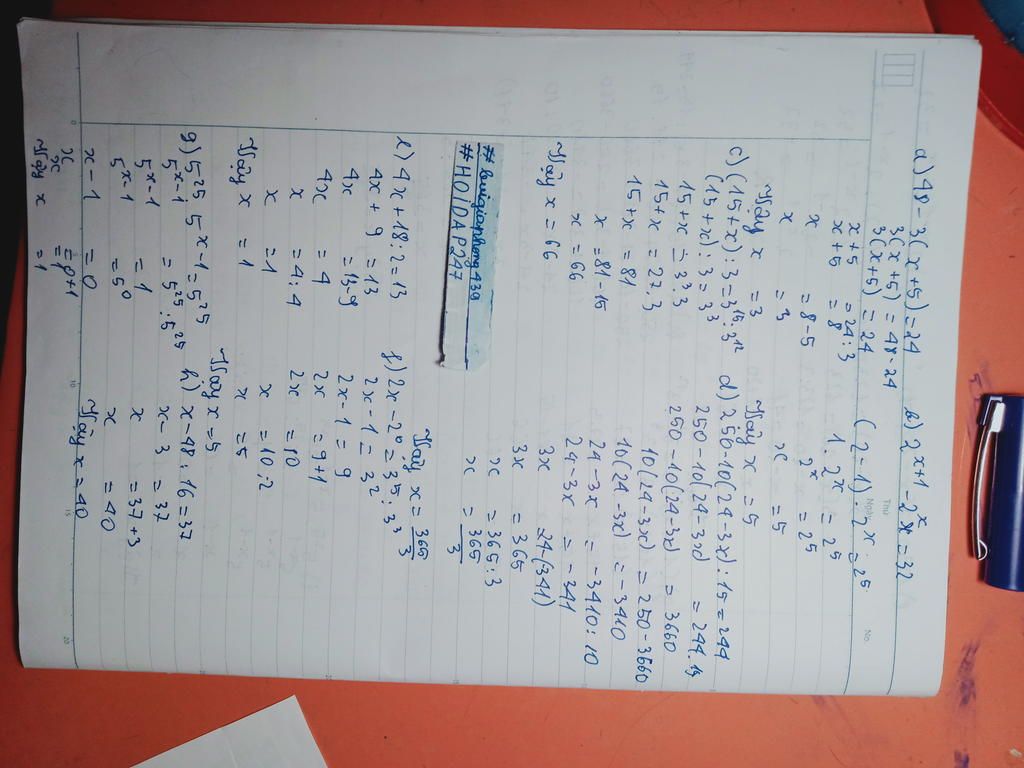 a) 48 - 3(x+5) = 24
3(x+5) = 48-24
3(x+5) = 24
x+5 = 24:3
x+5 = 8
x = 8-5
x = 3
Vậy x = 3
b) 2^{x+1} - 2^x = 32
(2-1) 2^x = 2^5
1. 2^x = 2^5
2^x = 2^5
x = 5
Vậy x = 5
c) (15+x):3 = 3^{15}:3^{12}
(15+x):3 = 3^3
15+x = 3^3.3
15+x = 27.3
15+x = 81
x = 81-15
x = 66
Vậy x = 66
d) 250-10(24-3x):15 = 244
250-10(24-3x) = 244.15
250-10(24-3x) = 3660
10(24-3x) = 250-3660
10(24-3x) = -3410
24-3x = -3410:10
24-3x = -341
3x 24-(-341)
3x = 365
x = 365:3
x = 365/3
Vậy x = 365/3
e) 4x+18:2 = 13
4x+9 = 13
4x = 13-9
4x = 4
x = 4:4
x = 1
Vậy x = 1
f) 2x-2^0 = 3^5:3^3
2x-1 = 3^2
2x-1 = 9
2x = 9+1
2x = 10
x = 10:2
x = 5
Vậy x = 5
g) 5^{25}. 5^{x-1} = 5^{25}
5^{x-1} = 5^{25}:5^{25}
5^{x-1} = 1
5^{x-1} = 5^0
x-1 = 0
x = 0+1
x = 1
Vậy x = 1
h) x-48:16 = 37
x-3 = 37
x = 37+3
x = 40
Vậy x = 40
#HOIDAP247
Thứ
Ngày
No
0
10
15
20